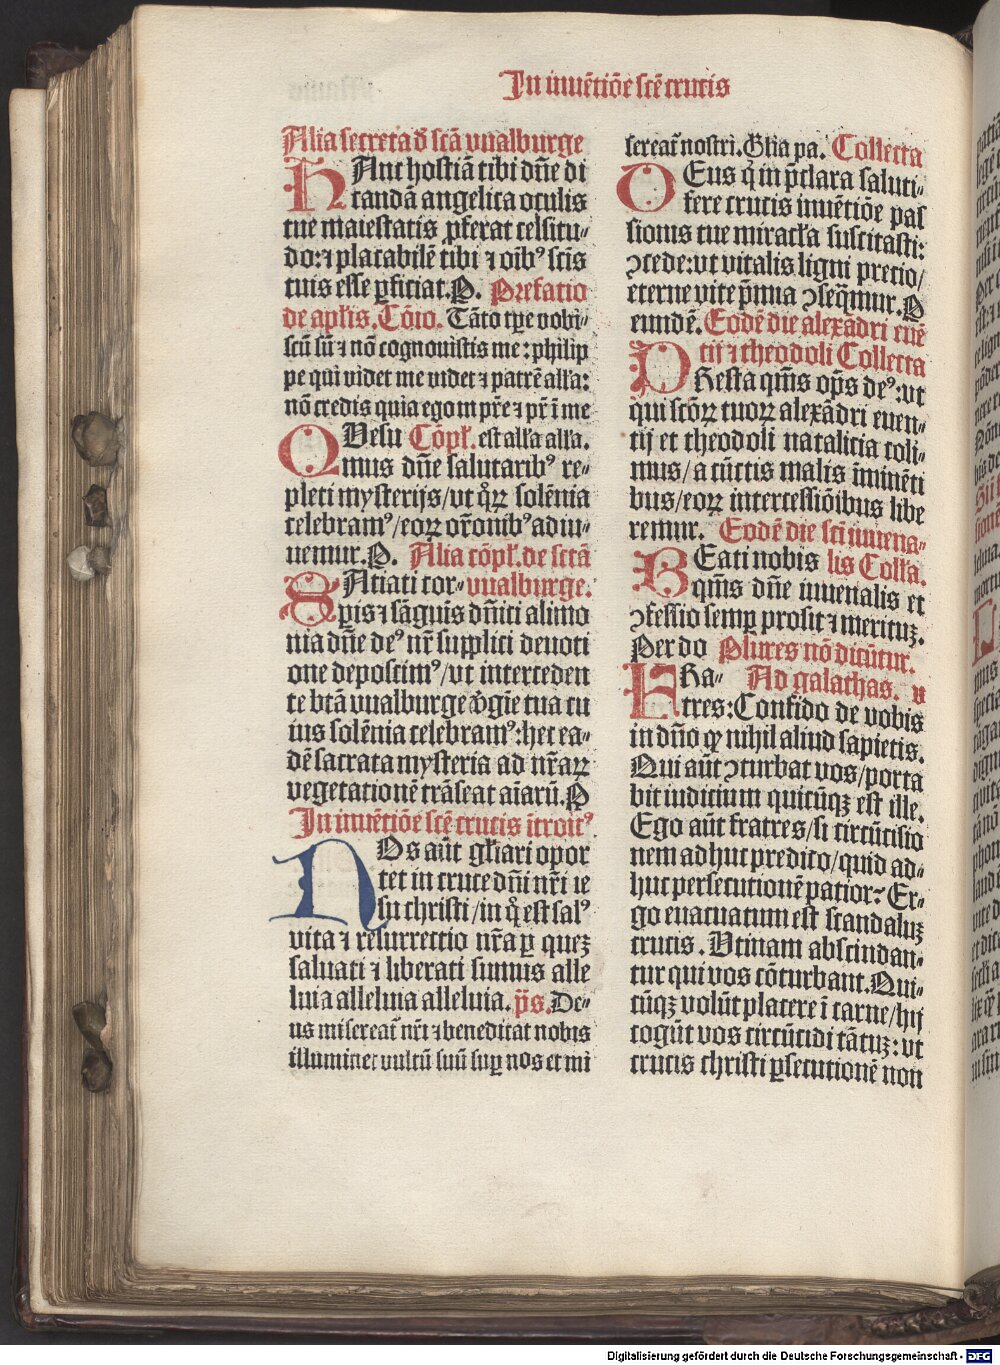 In inuẽtiõe scẽ crucis
Alia secreta d̕ scã vualburge
HAnc hostiã tibi dñe di
candã angelica oculis
tue maiestatis ꝓferat celsitu⸗
do:⁊ placabilẽ tibi ⁊ oĩbꝰ scis
tuis esse ꝑficiat.P. Prefatio
de aplis.Cõio. Tãto tꝑe vobi⸗
scũ sũ ⁊ nõ cognouistis me:philip
pe qui videt me videt ⁊ patrẽ alľa:
nõ credis quia ego in pr̃e ⁊ pr̃ ĩ me
QVesu Cõpľ. est alľa alľa.
mus dñe salutaribꝰ re⸗
pleti mysterijs/vt qͦꝝ solẽnia
celebramꝰ/eoꝝ or̃onibꝰ adiu⸗
uemur.P. Alia cõpľ.de sctã
SAtiati cor⸗ vualburge.
ꝑis ⁊ sãguis dñici alimo
nia dñe deꝰ nr̃ supplici deuoti
one deposcimꝰ/vt interceden
te btã vualburge ṽgĩe tua cu
ius solẽnia celebramꝰ:hec ea⸗
dẽ sacrata mysteria ad nr̃aꝝ
vegetationẽ trãseat aĩarũ.P
In inuẽtiõe scẽ crucis ĩtroitꝰ
NOs aũt gľiari opor
tet in cruce dñi nr̃i ie
su christi/in qͦ est salꝰ
vita ⁊ resurrectio nr̃a ꝑ quez
saluati ⁊ liberati sumus alle
luia alleluia alleluia. p̃s. De⸗
us misereat̃ nr̃i ⁊ benedicat nobis
illuminet vultũ suũ suꝑ nos et mi
sereat̃ nostri.Glia pa. Collecta
DEus q̇ in p̃clara saluti⸗
fere crucis inuẽtiõe pas
sionis tue miracľa suscitasti:
ꝯcede:vt vitalis ligni precio/
eterne vite p̃mia ꝯseq̃mur.P
eundẽ. Eodẽ die alexãdri euẽ
PResta qm̃s op̃s deꝰ:vt tij ⁊ theodoli Collecta
qui sctõꝝ tuoꝝ alexãdri euen⸗
tij et theodoli natalicia coli⸗
mus/a cũctis malis ĩminẽti
bus/eoꝝ intercessiõibus libe
remur. Eodẽ die scti iuuena⸗
BEati nobis lis Colľa.
qm̃s dñe iuuenalis et
ꝯfessio semꝑ prosit ⁊ meritũ.
Per do Plures nõ dicũtur.
FRa⸗ Ad galathas. v
tres:Confido de vobis
in dño ꝙ nihil aliud sapietis.
Qui aũt ꝯturbat vos/porta
bit iudicium quicũqꝫ est ille.
Ego aũt fratres/si circũcisio
nem adhuc predico/quid ad⸗
huc persecutionẽ patior? Er⸗
go euacuatum est scandaluꝫ
crucis. Vtinam abscindan⸗
tur qui vos cõturbant.Qui⸗
cũqꝫ volũt placere ĩ carne/hij
cogũt vos circũcidi tãtuꝫ:vt
crucis christi ꝑsecutionẽ non
Digitalisierung gefördert durch die Deutsche Forschungsgemeinschaft - DFG